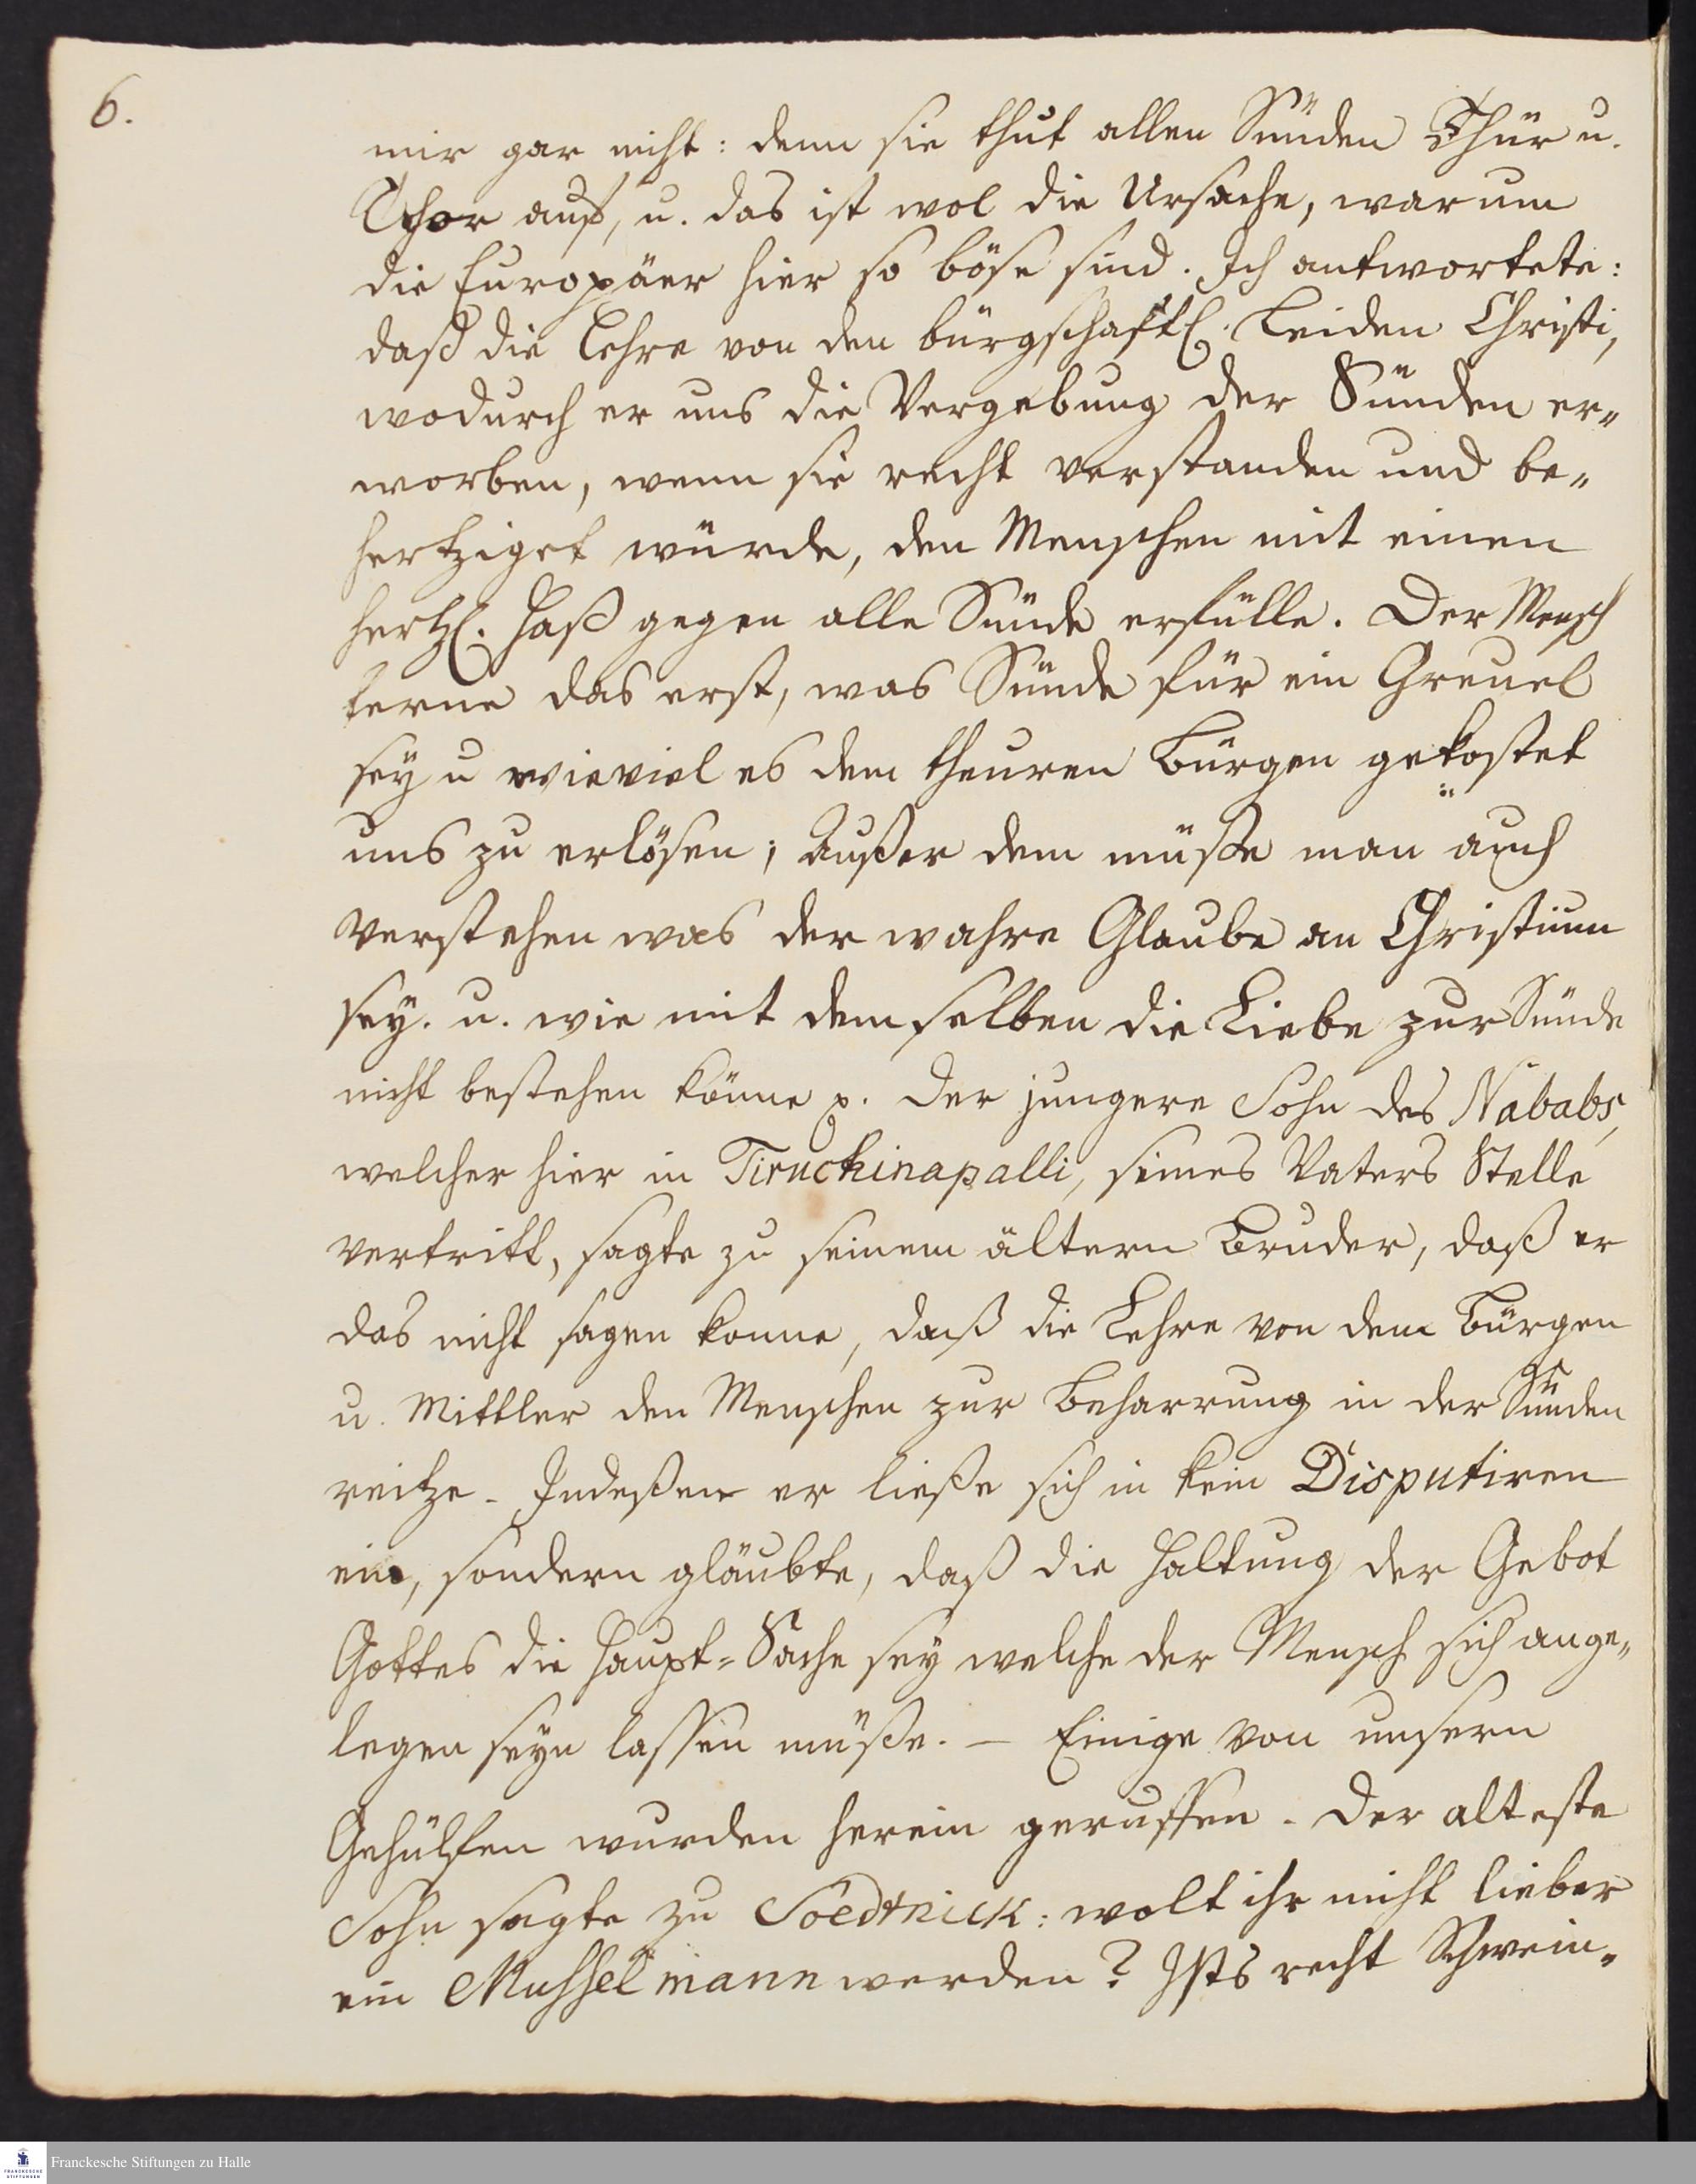 6.
mir gar nicht: denn sie thut allen Sünden Thür u.
Thor auf, u. das ist wol die Ursache, warum
die Europäer hier so böse sind. Ich antwortete:
daß die Lehre von den bürgschaftl. Leiden Christi,
wodurch er uns die Vergebung der Sünden er„
worben, wenn sie recht verstanden und be„
hertziget würde, den Menschen mit einen
hertzl. Haß gegen alle Sünde erfülle. Der Mensch
lerne das erst, was Sünde für ein Greuel
sey u wieviel es dem theuren Bürgen gekostet
uns zu erlösen; Außer dem müße man auch
verstehen was der wahre Glaube an Christum
sey. u. wie mit demselben die Liebe zur Sünde
nicht bestehen könne p. Der jungere Sohn des Nababs,
welcher hier in Tiruckinapalli, seines Vaters Stelle
vertritt, sagte zu seinem ältern Bruder, daß er
das nicht sagen konne, daß die Lehre von dem Bürgen
u. Mittler den Menschen zur Beharrung in der Sünden
reitze. Indeßen er ließe sich in kein Disputiren
ein, sondern gläubte, daß die Haltung der Gebot
Gottes die Haupt=Sache sey welche der Mensch sich ange„
legen seyn lassen müße. – Einige von unsern
Gehülfen wurden herein geruffen. Der alteste
Sohn sagte zu Soedtnick: wolt ihr nicht lieber
ein Musselmann werden? Ists recht Schwein„
Franckesche Stiftungen zu Halle
FRANCKESCHE
STIFTUNGEN